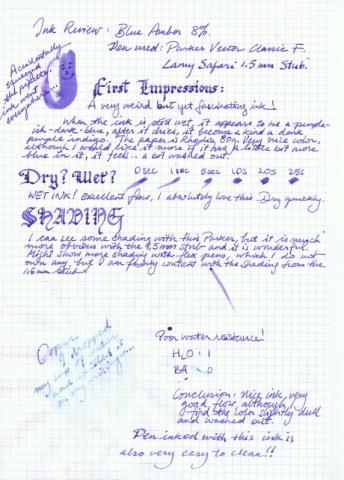 Ink Review: Blue Amber 8%.
Pen used: Parker Vector Classic F.
Lamy Safari 1.5 mm Stub.
Accidentally
squeezed
the pipette.
ink went
everywhere...
First Impressions:
A very weird but yet fascinating ink!
When the ink is still wet, it appears to me a purple-
ish-dark-blue, after it dries, it become a kind a dark
purple indigo. The paper is Rhodia 80g. Very nice color,
although I would like it more if it has a little bit more
blue in it, it feels.. a bit washed out.
Dry? Wet? 0sec 1sec 5sec 10s 20s 25s
WET INK! Excellent flow, I absolutely love this. Dry quickly.
SHADING
I can see some shading with this Parker, but it is much
more obvious with the 1,5mm stub and it is wonderful.
Might show more shading with flex pens, which I do not
own any, but I am fairly content with the shading from the
1.5mm stub!
Oops..
I dropped
my
of water
and spilled it
on my writings...
Poor water resistence!
H₂O : 1
BA 0
Conclusion: Nice ink, very
good flow, although, I
find the color slightly dull
and washed out.
Pen inked with this ink is
also very easy to clean!!